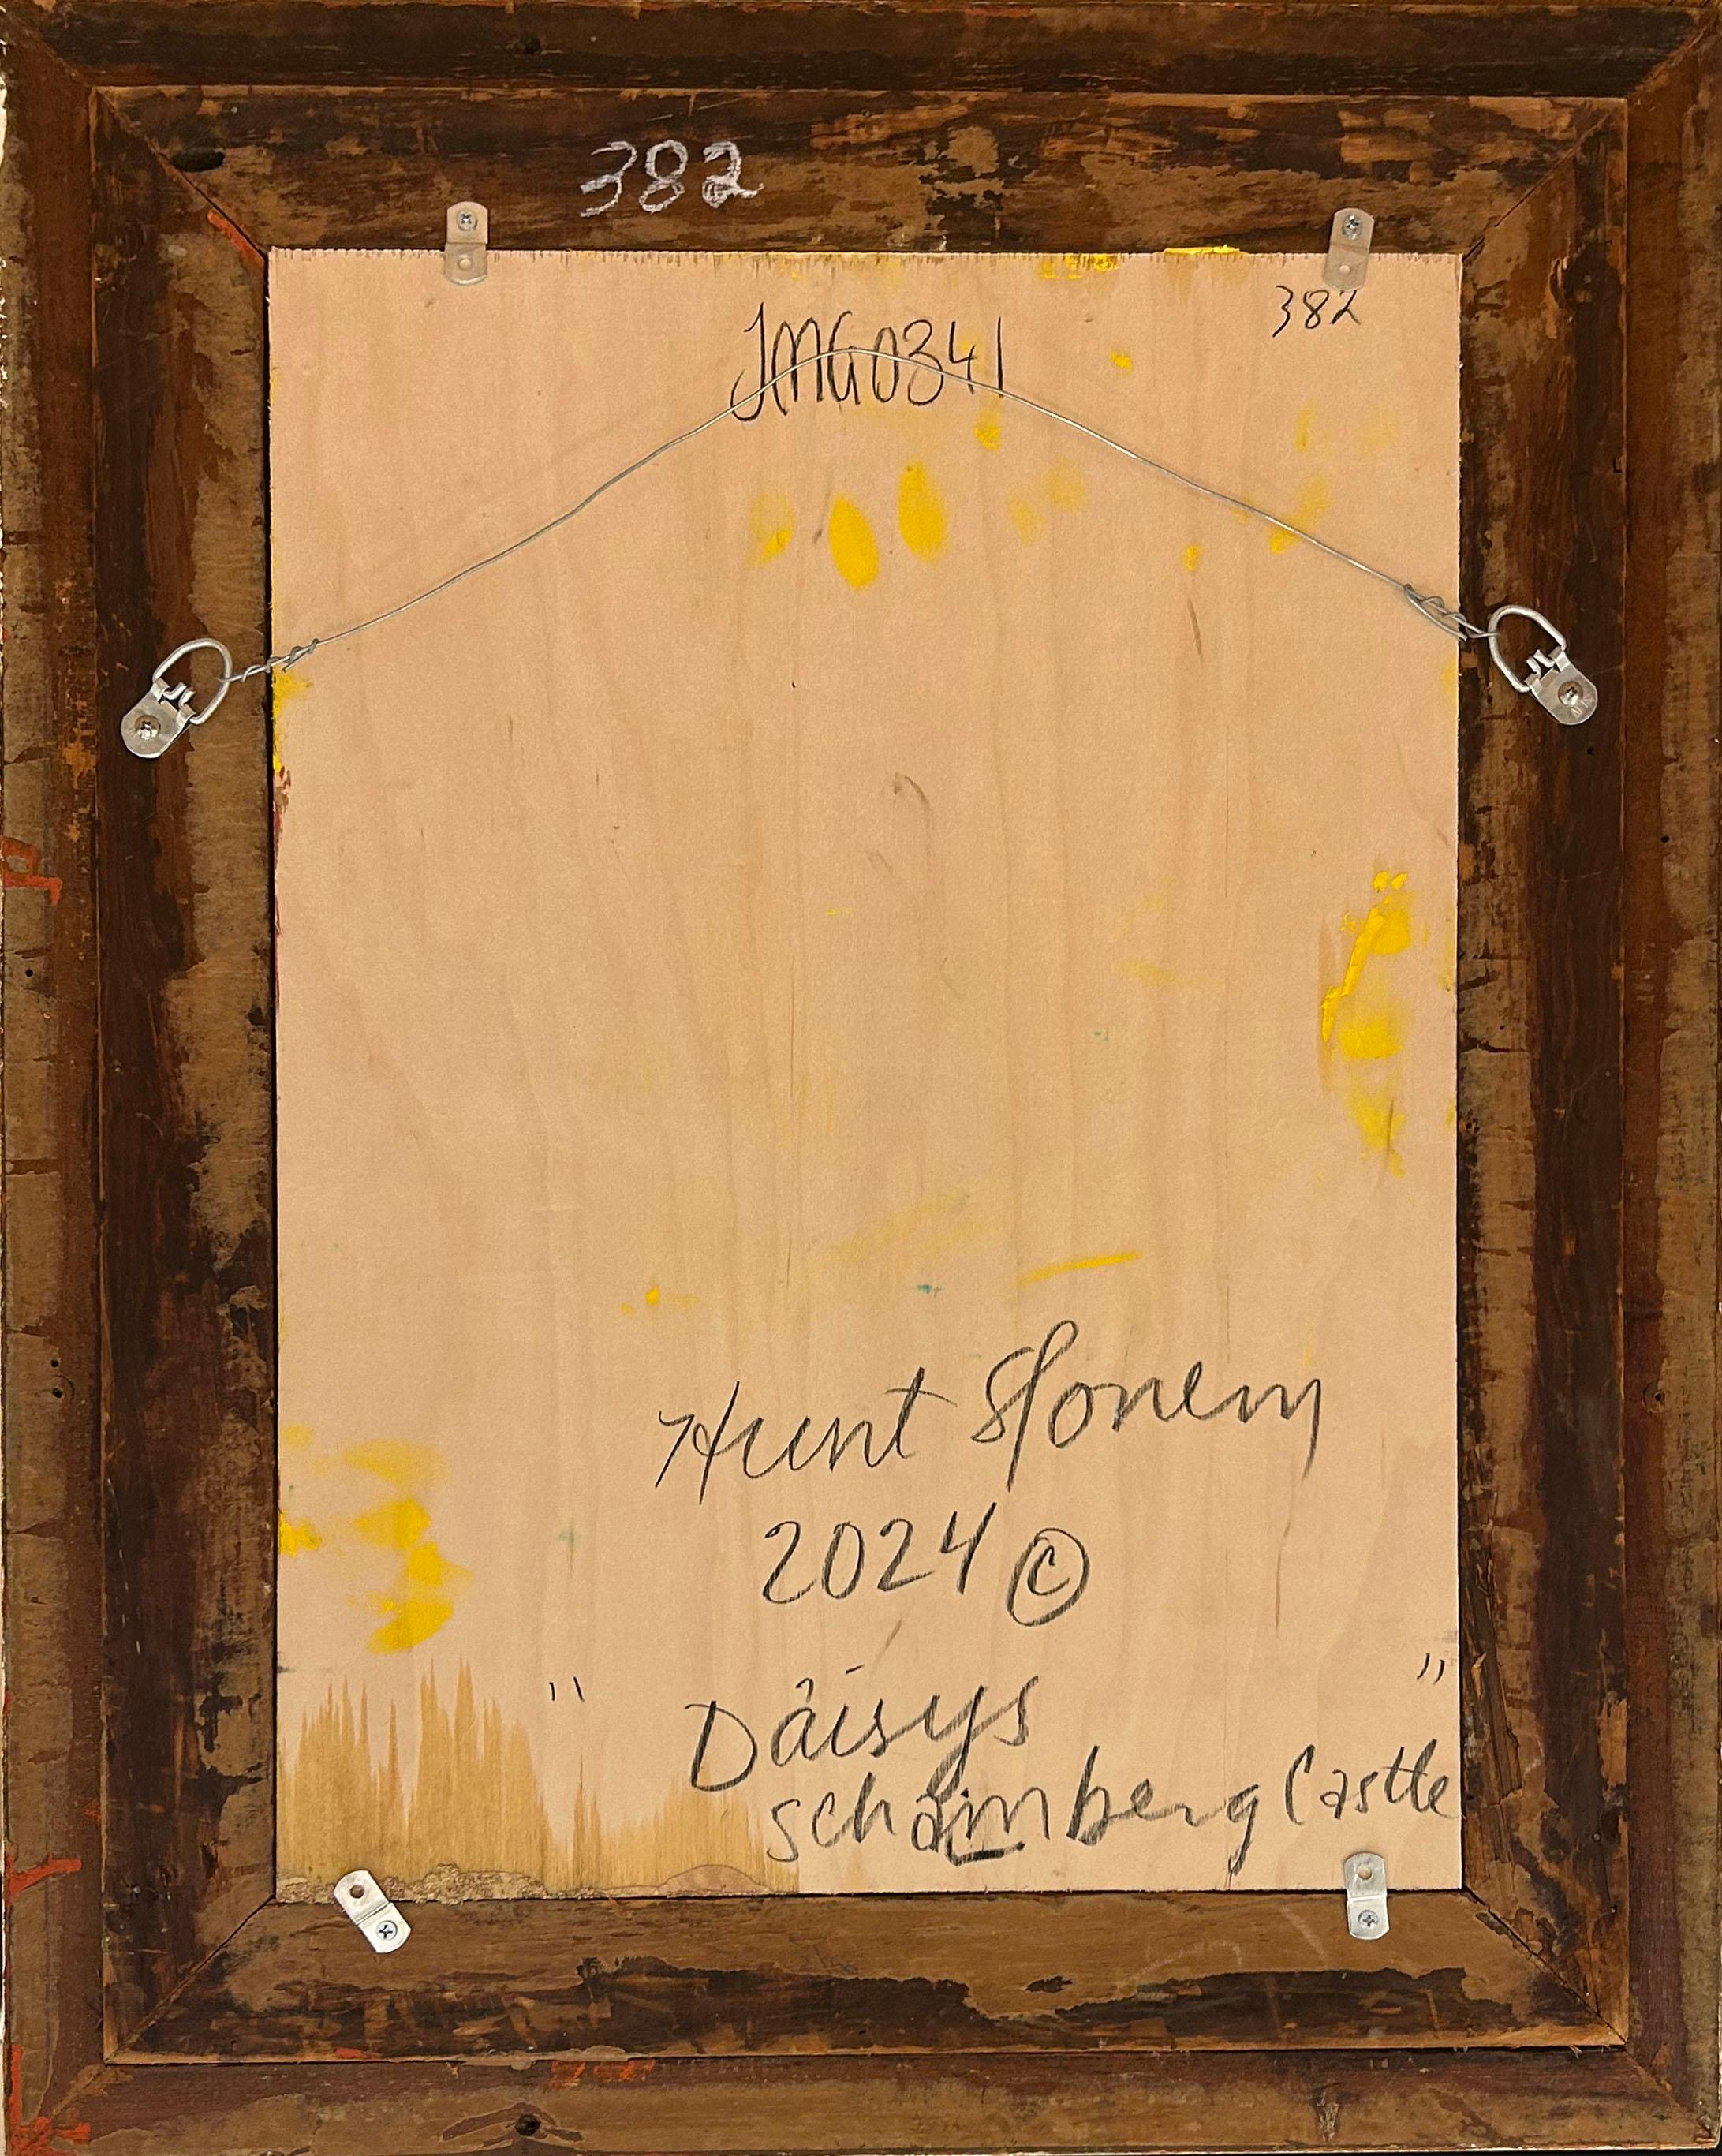 382
382
JMG0341
Hunt Slonem
2024 ©
" Daisys "
schamberg Castle